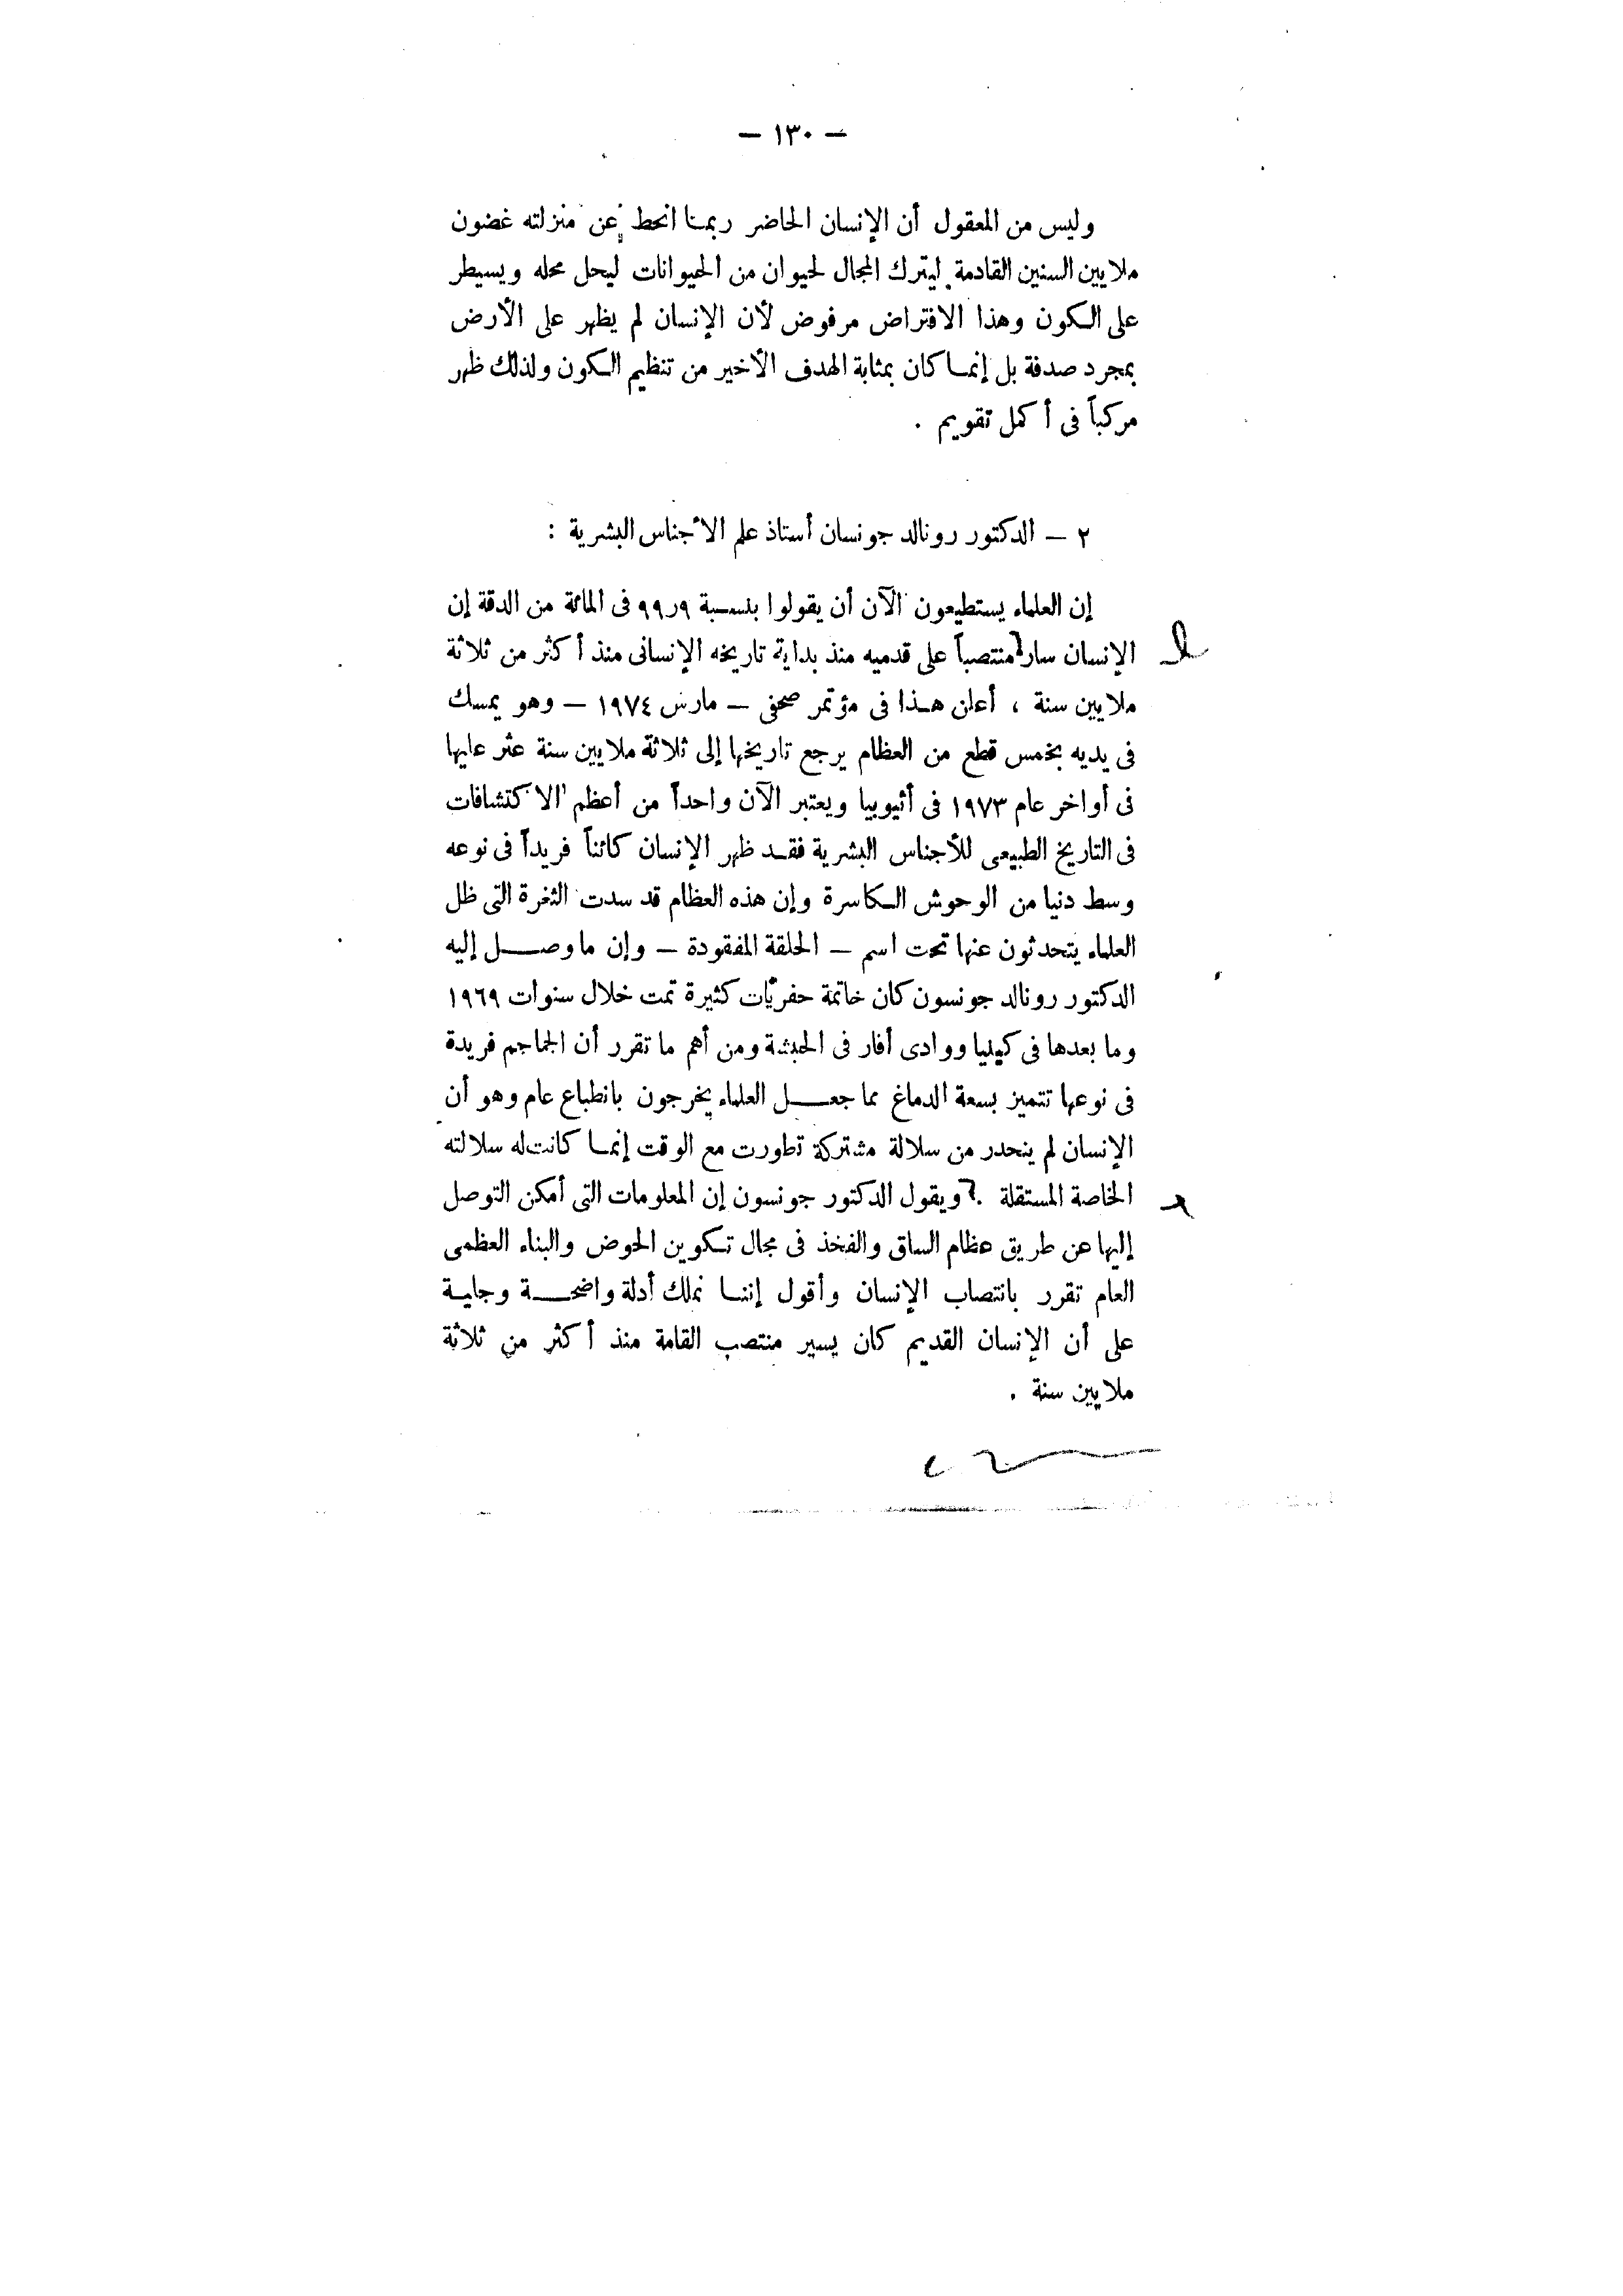 — ١٣٠ —
وليس من المعقول أن الإنسان الحاضر ربمـا انحط عن منزلته غضون
ملايين السنين القادمة ليترك المجال لحيوان من الحيوانات ليحل محله ويسيطر
على الـكون وهذا الافتراض مرفوض لأن الإنسان لم يظهر على الأرض
بمجرد صدفة بل إنمـا كان بمثابة الهدف الأخير من تنظيم الـكون ولذلك ظهر
مركباً فى أكمل تقويم .
٢ — الدكتور رونالد جونسان أستاذ علم الأجناس البشرية :
إن العلماء يستطيعون الآن أن يقولوا بنسـبة ٩ر٩٩ فى المائة من الدقة إن
الإنسان سار منتصباً على قدميه منذ بداية تاريخه الإنسانى منذ أكثر من ثلاثة
ملايين سنة ، أعلن هـذا فى مؤتمر صحفى — مارس ١٩٧٤ — وهو يمسك
فى يديه بخمس قطع من العظام يرجع تاريخها إلى ثلاثة ملايين سنة عثر عليها
فى أواخر عام ١٩٧٣ فى أثيوبيا ويعتبر الآن واحداً من أعظم الاكتشافات
فى التاريخ الطبيعى للأجناس البشرية فقـد ظهر الإنسان كائناً فريداً فى نوعه
وسط دنيا من الوحوش الـكاسرة وإن هذه العظام قد سدت الثغرة التى ظل
العلماء يتحدثون عنها تحت اسم — الحلقة المفقودة — وإن ما وصـــل إليه
الدكتور رونالد جونسون كان خاتمة حفريات كثيرة تمت خلال سنوات ١٩٦٩
وما بعدها فى كينيا ووادى أفار فى الحبشة ومن أهم ما تقرر أن الجماجم فريدة
فى نوعها تتميز بسعة الدماغ مما جعـــل العلماء يخرجون بانطباع عام وهو أن
الإنسان لم ينحدر من سلالة مشتركة تطورت مع الوقت إنمـا كانت له سلالته
الخاصة المستقلة . ويقول الدكتور جونسون إن المعلومات التى أمكن التوصل
إليها عن طريق عظام الساق والفخذ فى مجال تـكوين الحوض والبناء العظمى
العام تقرر بانتصاب الإنسان وأقول إننـا نملك أدلة واضحـــة وجليـة
على أن الإنسان القديم كان يسير منتصب القامة منذ أكثر من ثلاثة
ملايين سنة .